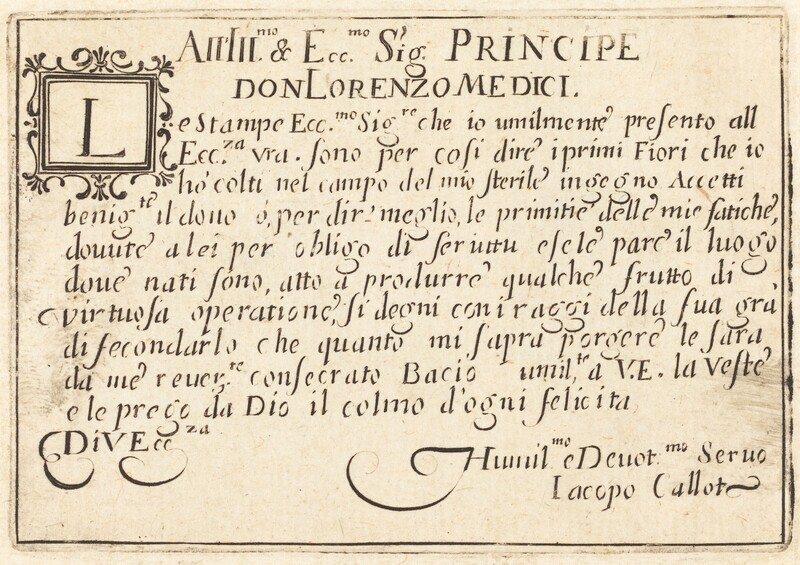 All'Ill.mo & Ecc.mo Sig. PRINCIPE
DON LORENZO MEDICI.
Le Stampe Ecc.mo Sig.re che io umilmente presento all
Ecc.za vra. sono per cosi dire i primi Fiori che io
ho colti nel campo del mio sterile ingegno Accetti
benig.te il dono ó, per dir meglio, le primitie delle mie fatiche,
douute a lei per obligo di seruitu e se le pare il luogo
doue nati sono, atto a produrre qualche frutto di
virtuosa operatione, si degni con i raggi della sua gra
di fecondarlo che quanto mi sapra porgere le sara
da me reuer.te consecrato Bacio umil.te a V.E. la veste
e le prego da Dio il colmo d'ogni felicita
Di V Ecc.za
Humil.mo e Deuot.mo Seruo
Iacopo Callot